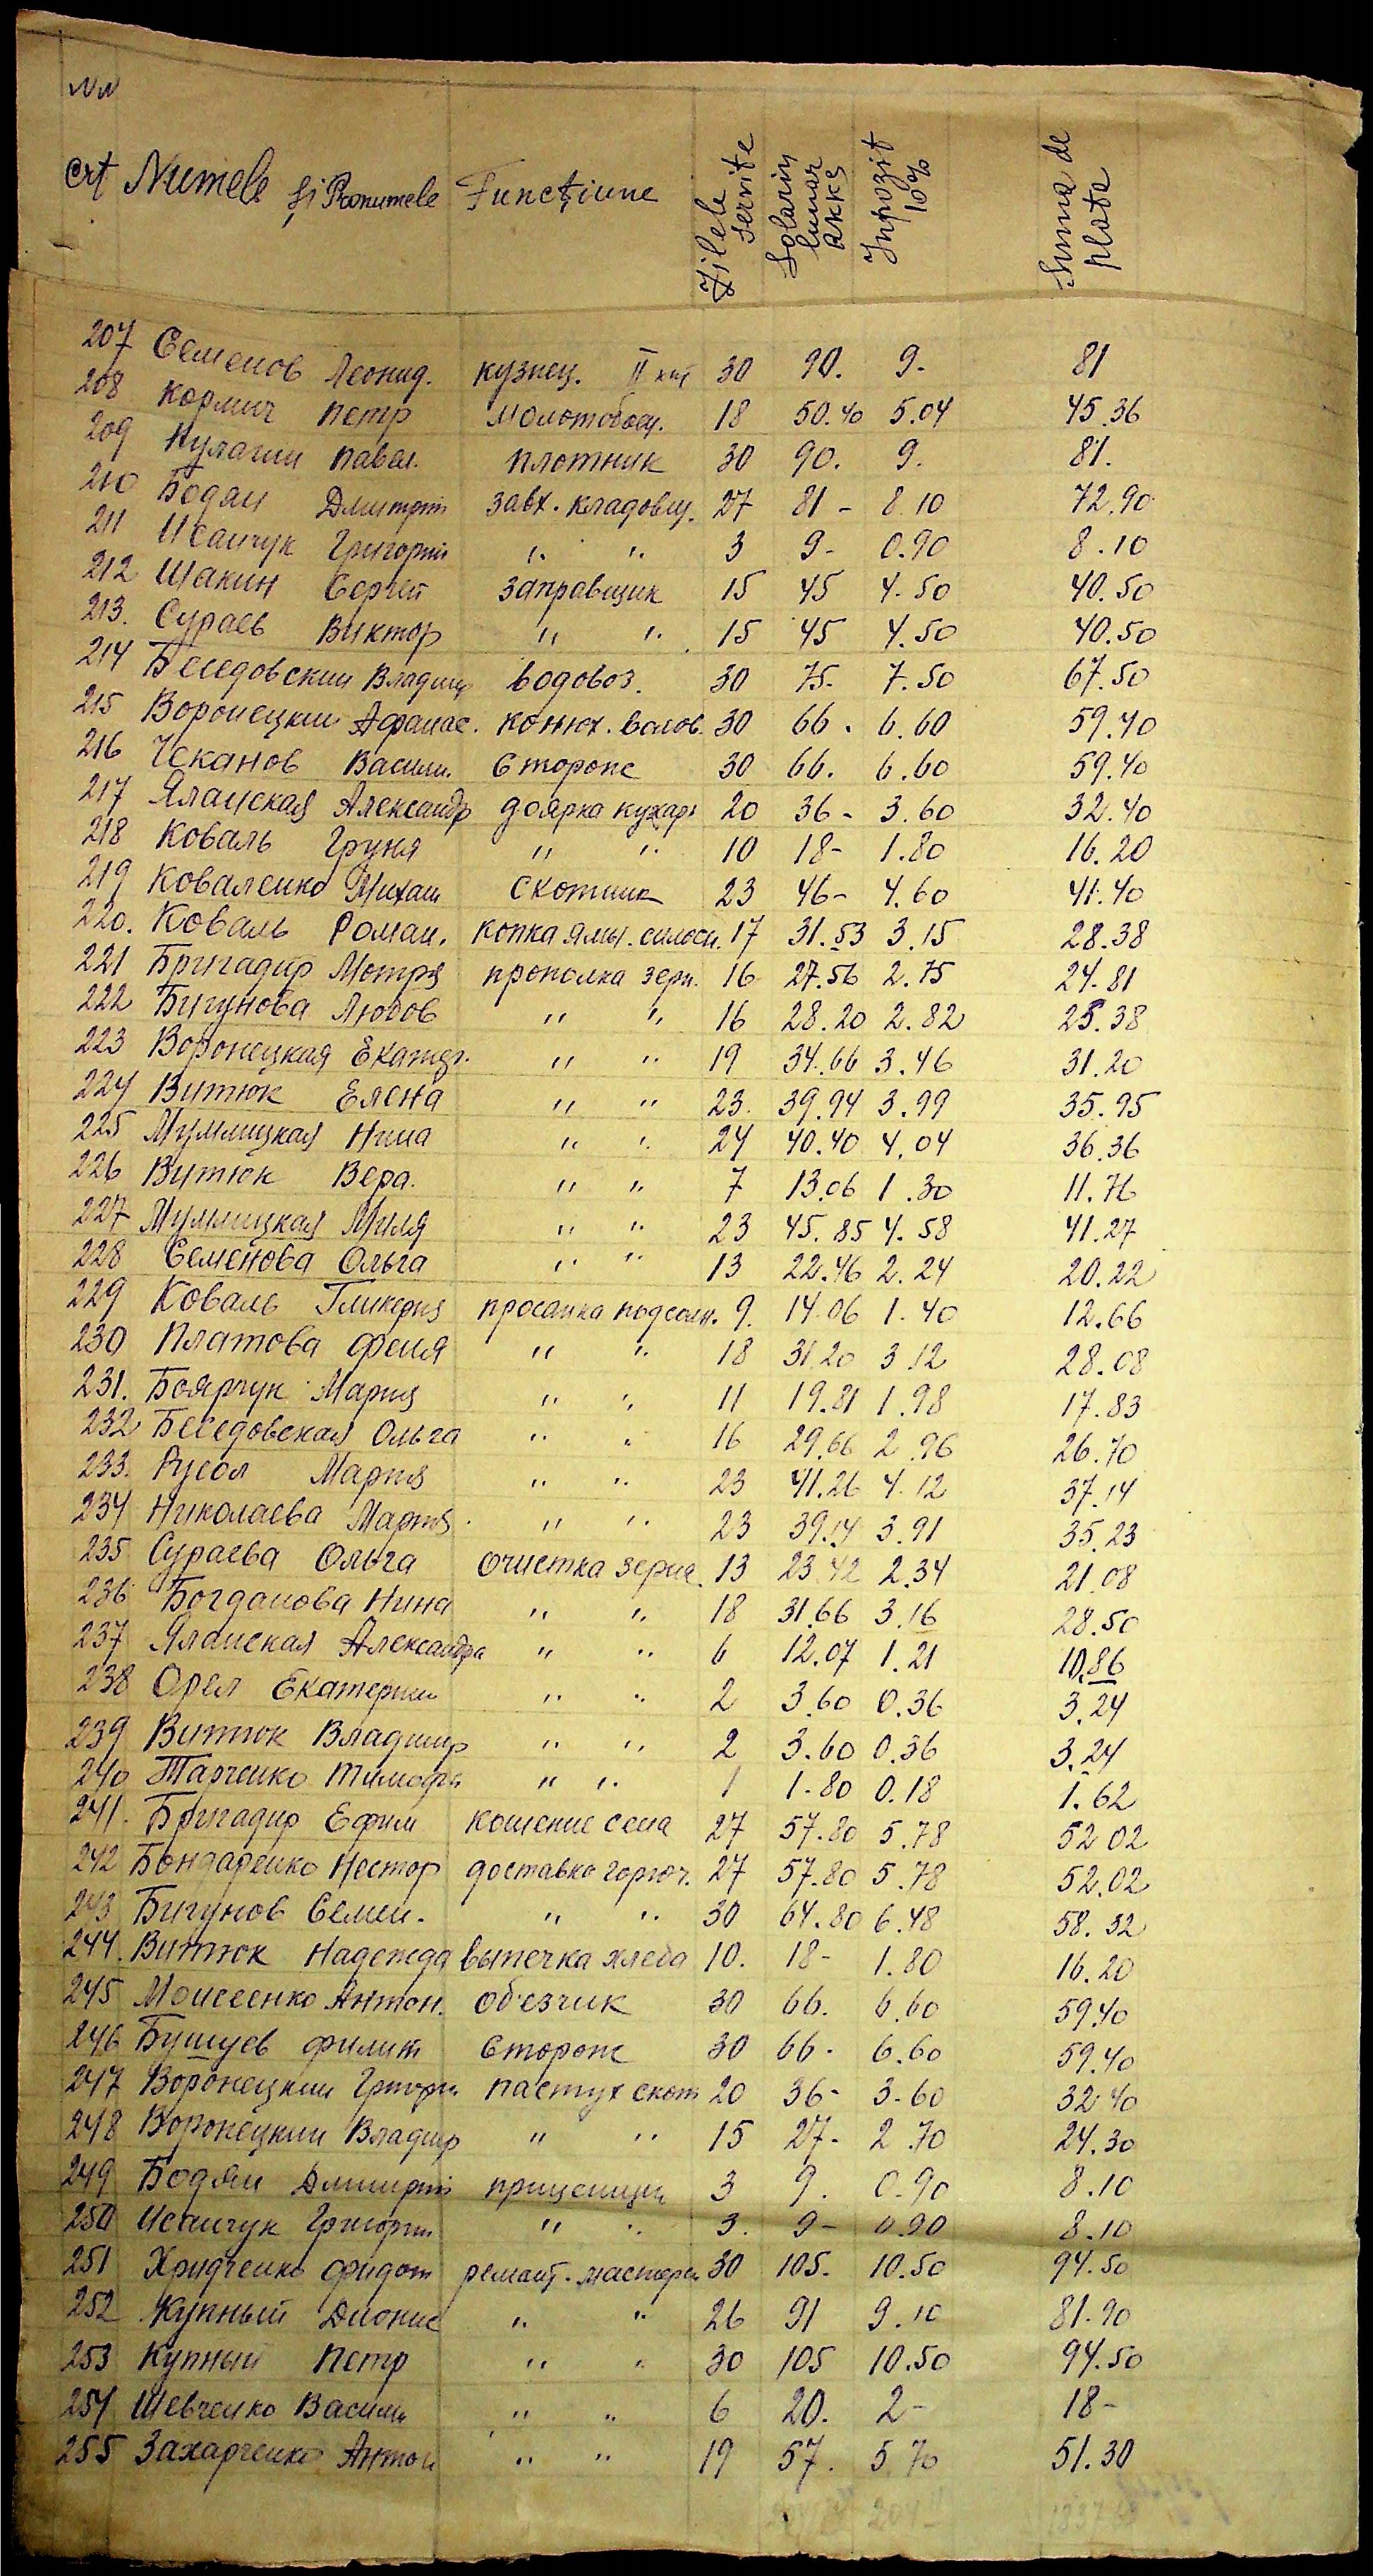 NN
crt Numele și Pronumele Funcțiune Zilele servite Solariu lunar RKKS Inpozit 10% Suma de plata
207 Семенов Леонид. кузнец. II 30 90. 9. 81
208 Кормич Петр молотобоец. 18 50.40 5.04 45.36
209 Кулагин Павел. плотник 30 90. 9. 81.
210 Бодян Дмитрий завх. кладовщ. 27 81 - 8.10 72.90
211 Исайчук Григорий " " 3 9- 0.90 8.10
212 Шакин Сергей заправщик 15 45 4.50 40.50
213. Сураев Виктор " " 15 45 4.50 40.50
214 Беседовский Владимир водовоз. 30 75- 7.50 67.50
215 Воронецкий Афанас. конюх. волов. 30 66. 6.60 59.40
216 Чеканов Васили. Сторож 30 66. 6.60 59.40
217 Яланская Александр доярка кухар. 20 36 - 3.60 32.40
218 Коваль Груня " " 10 18- 1.80 16.20
219 Коваленко Михаил Скотник 23 46- 4.60 41.40
220. Коваль Роман. копка ямы. силосн. 17 31.53 3.15 28.38
221 Бригадир Мотря прополка зерн. 16 27.56 2.75 24.81
222 Бигунова Любов " " 16 28.20 2.82 25.38
223 Воронецкая Екатер. " " 19 34.66 3.46 31.20
224 Витюк Елена " " 23. 39.94 3.99 35.95
225 Мумлицкая Нина " " 24 40.40 4.04 36.36
226 Витюк Вера. " " 7 13.06 1.30 11.76
227 Мумлицкая Миля " " 23 45.85 4.58 41.27
228 Семенова Ольга " " 13 22.46 2.24 20.22
229 Коваль Гликерия просапка подсолн. 9. 14.06 1.40 12.66
230 Платова Феня " " 18 31.20 3.12 28.08
231. Боярчук Мария " " 11 19.81 1.98 17.83
232 Беседовская Ольга " " 16 29.66 2.96 26.70
233. Русол Мария " " 23 41.26 4.12 37.14
234 Николаева Мария. " " 23 39.14 3.91 35.23
235 Сураева Ольга очистка зерна. 13 23.42 2.34 21.08
236 Богданова Нина " " 18 31.66 3.16 28.50
237 Яланская Александра " " 6 12.07 1.21 10.86
238 Орел Екатерина " " 2 3.60 0.36 3.24
239 Витюк Владимир " " 2 3.60 0.36 3.24
240 Тарченко Тимофе " " 1 1.80 0.18 1.62
241. Бригадир Ефим кошение сена 27 57.80 5.78 52.02
242 Бондаренко Нестор доставка горюч. 27 57.80 5.78 52.02
243 Бигунов Семен. " " 30 64.80 6.48 58.32
244. Витюк Надежда выпечка хлеба 10. 18- 1.80 16.20
245 Моисеенко Антон. об'езчик 30 66. 6.60 59.40
246 Бушуев Филип Сторож 30 66. 6.60 59.40
247 Воронецкий Григори пастух скот 20 36- 3.60 32.40
248 Воронецкий Владимир " " 15 27- 2.70 24.30
249 Бодян Дмитрий прицепщик 3 9. 0.90 8.10
250 Исайчук Григорий " " 3. 9- 0.90 8.10
251 Хридченко Фидот ремонт. мастерск 30 105. 10.50 94.50
252 Купный Дионис " " 26 91 9.10 81.90
253 Купный Петр " " 30 105 10.50 94.50
254 Шевченко Василий " " 6 20. 2- 18-
255 Захарченко Антон " " 19 57. 5.70 51.30